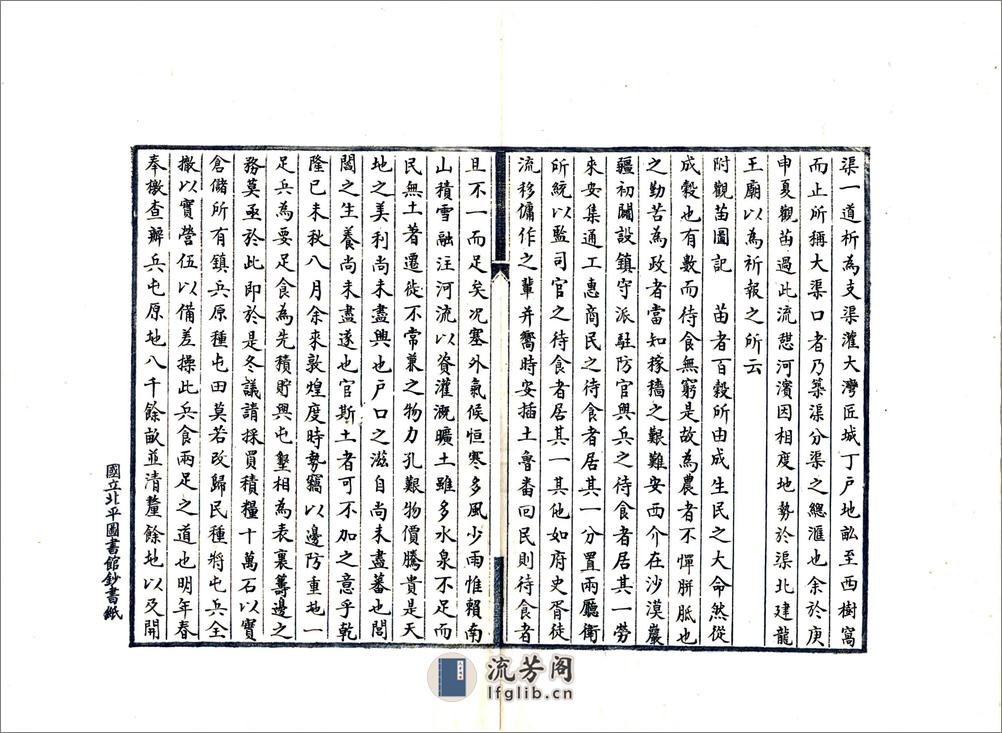 渠一道析為支渠灌大灣匠城丁戶地畝至西樹窩
而止所稱大渠口者乃築渠分渠之總滙也余於庚
申夏觀苗過此流憇河濱因相度地勢於渠北建龍
王廟以為祈報之所云
附觀苗圖記　苗者百穀所由成生民之大命然從
成穀也有數而待食無窮是故為農者不憚胼胝也
之勤苦為政者當知稼穡之艱難安西介在沙漠巖
疆初闢設鎮守派駐防官與兵之待食者居其一勞
來安集通工惠商民之待食者居其一分置兩廳衛
所統以監司官之待食者居其一其他如府史胥徒
流移傭作之輩并嚮時安插土魯番回民則待食者
且不一而足矣况塞外氣候恒寒多風少雨惟賴南
山積雪融注河流以資灌溉曠土雖多水泉不足而
民無土著遷徙不常兼之物力孔艱物價騰貴是天
地之美利尚未盡興也戶口之滋自尚未盡蕃也閭
閻之生養尚未盡遂也官斯土者可不加之意乎乾
隆己未秋八月余來敦煌度時勢竊以邊防重地一
足兵為要足食為先積貯與屯墾相為表裏籌邊之
務莫亟於此即於是冬議請採買積糧十萬石以實
倉儲所有鎮兵原種屯田莫若改歸民種將屯兵全
撤以實營伍以備差操此兵食兩足之道也明年春
奉檄查辦兵屯原地八千餘畝並清釐餘地以及開
國立北平圖書館鈔書紙
流芳阁
lfglib.cn